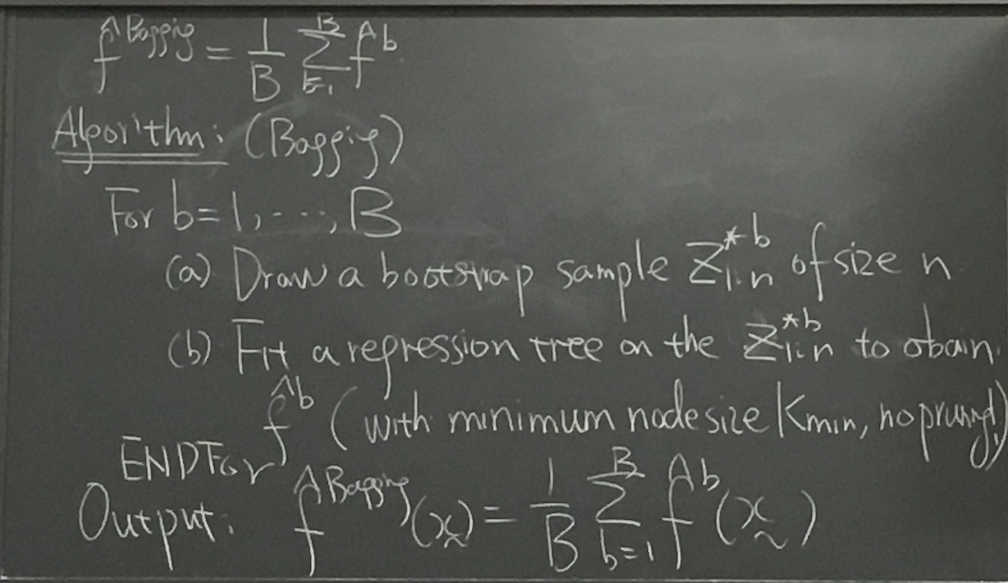 f̂^Bagging = 1/B Σ_{b=1}^{B} f̂^b
Algorithm: (Bagging)
For b=1,...,B
(a) Draw a bootstrap sample Z_{1:n}^{*b} of size n
(b) Fit a regression tree on the Z_{1:n}^{*b} to obain
f̂^b (with minimum node size Kmin, no pruning)
ENDFor
Output: f̂^Bagging(x̰) = 1/B Σ_{b=1}^{B} f̂^b(x̰)